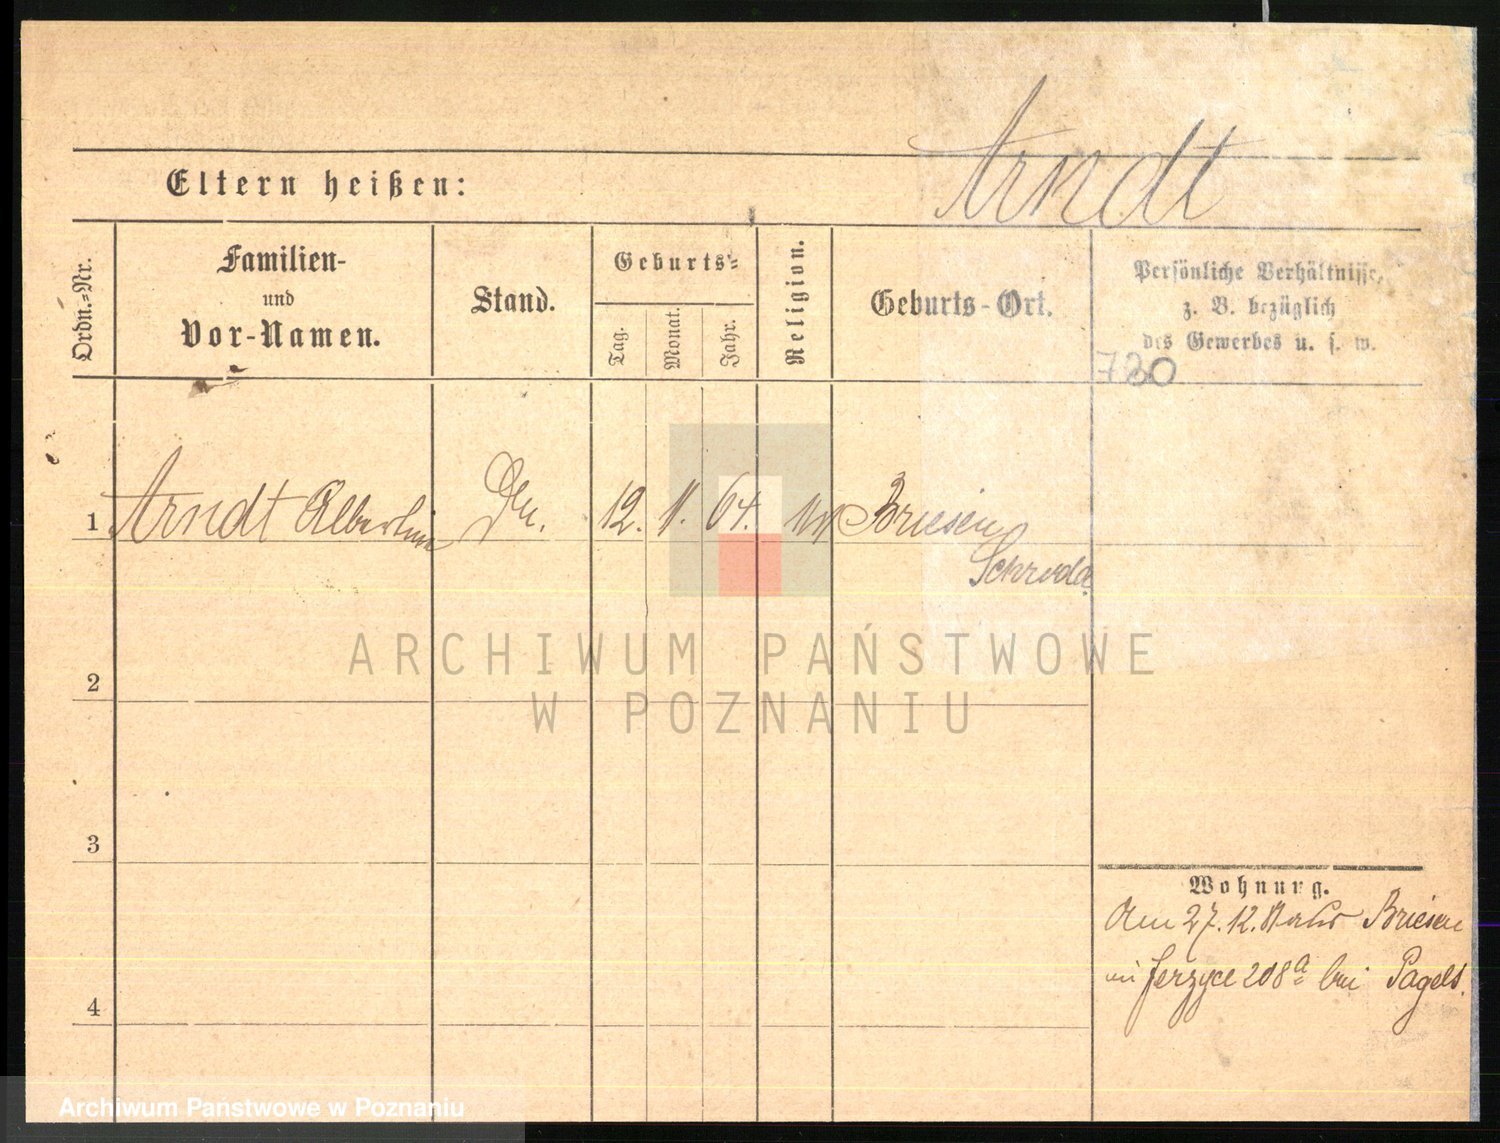 Arndt
Eltern heißen:
Ordn.=Nr.
Familien-
und
Vor-Namen.
Stand.
Geburts=
Tag.
Monat.
Jahr.
Religion.
Geburts-Ort.
Persönliche Verhältnisse,
z. B. bezüglich
des Gewerbes u. s. w.
780
1 Arndt Albertine 12. 11. 64. Briesen
Schroda
ARCHIWUM PAŃSTWOWE
W POZNANIU
2
3
4
Wohnung.
Am 27. 12. Briesen
Jerzyce 208a bei Pagels.
Archiwum Panstwowe w Poznaniu